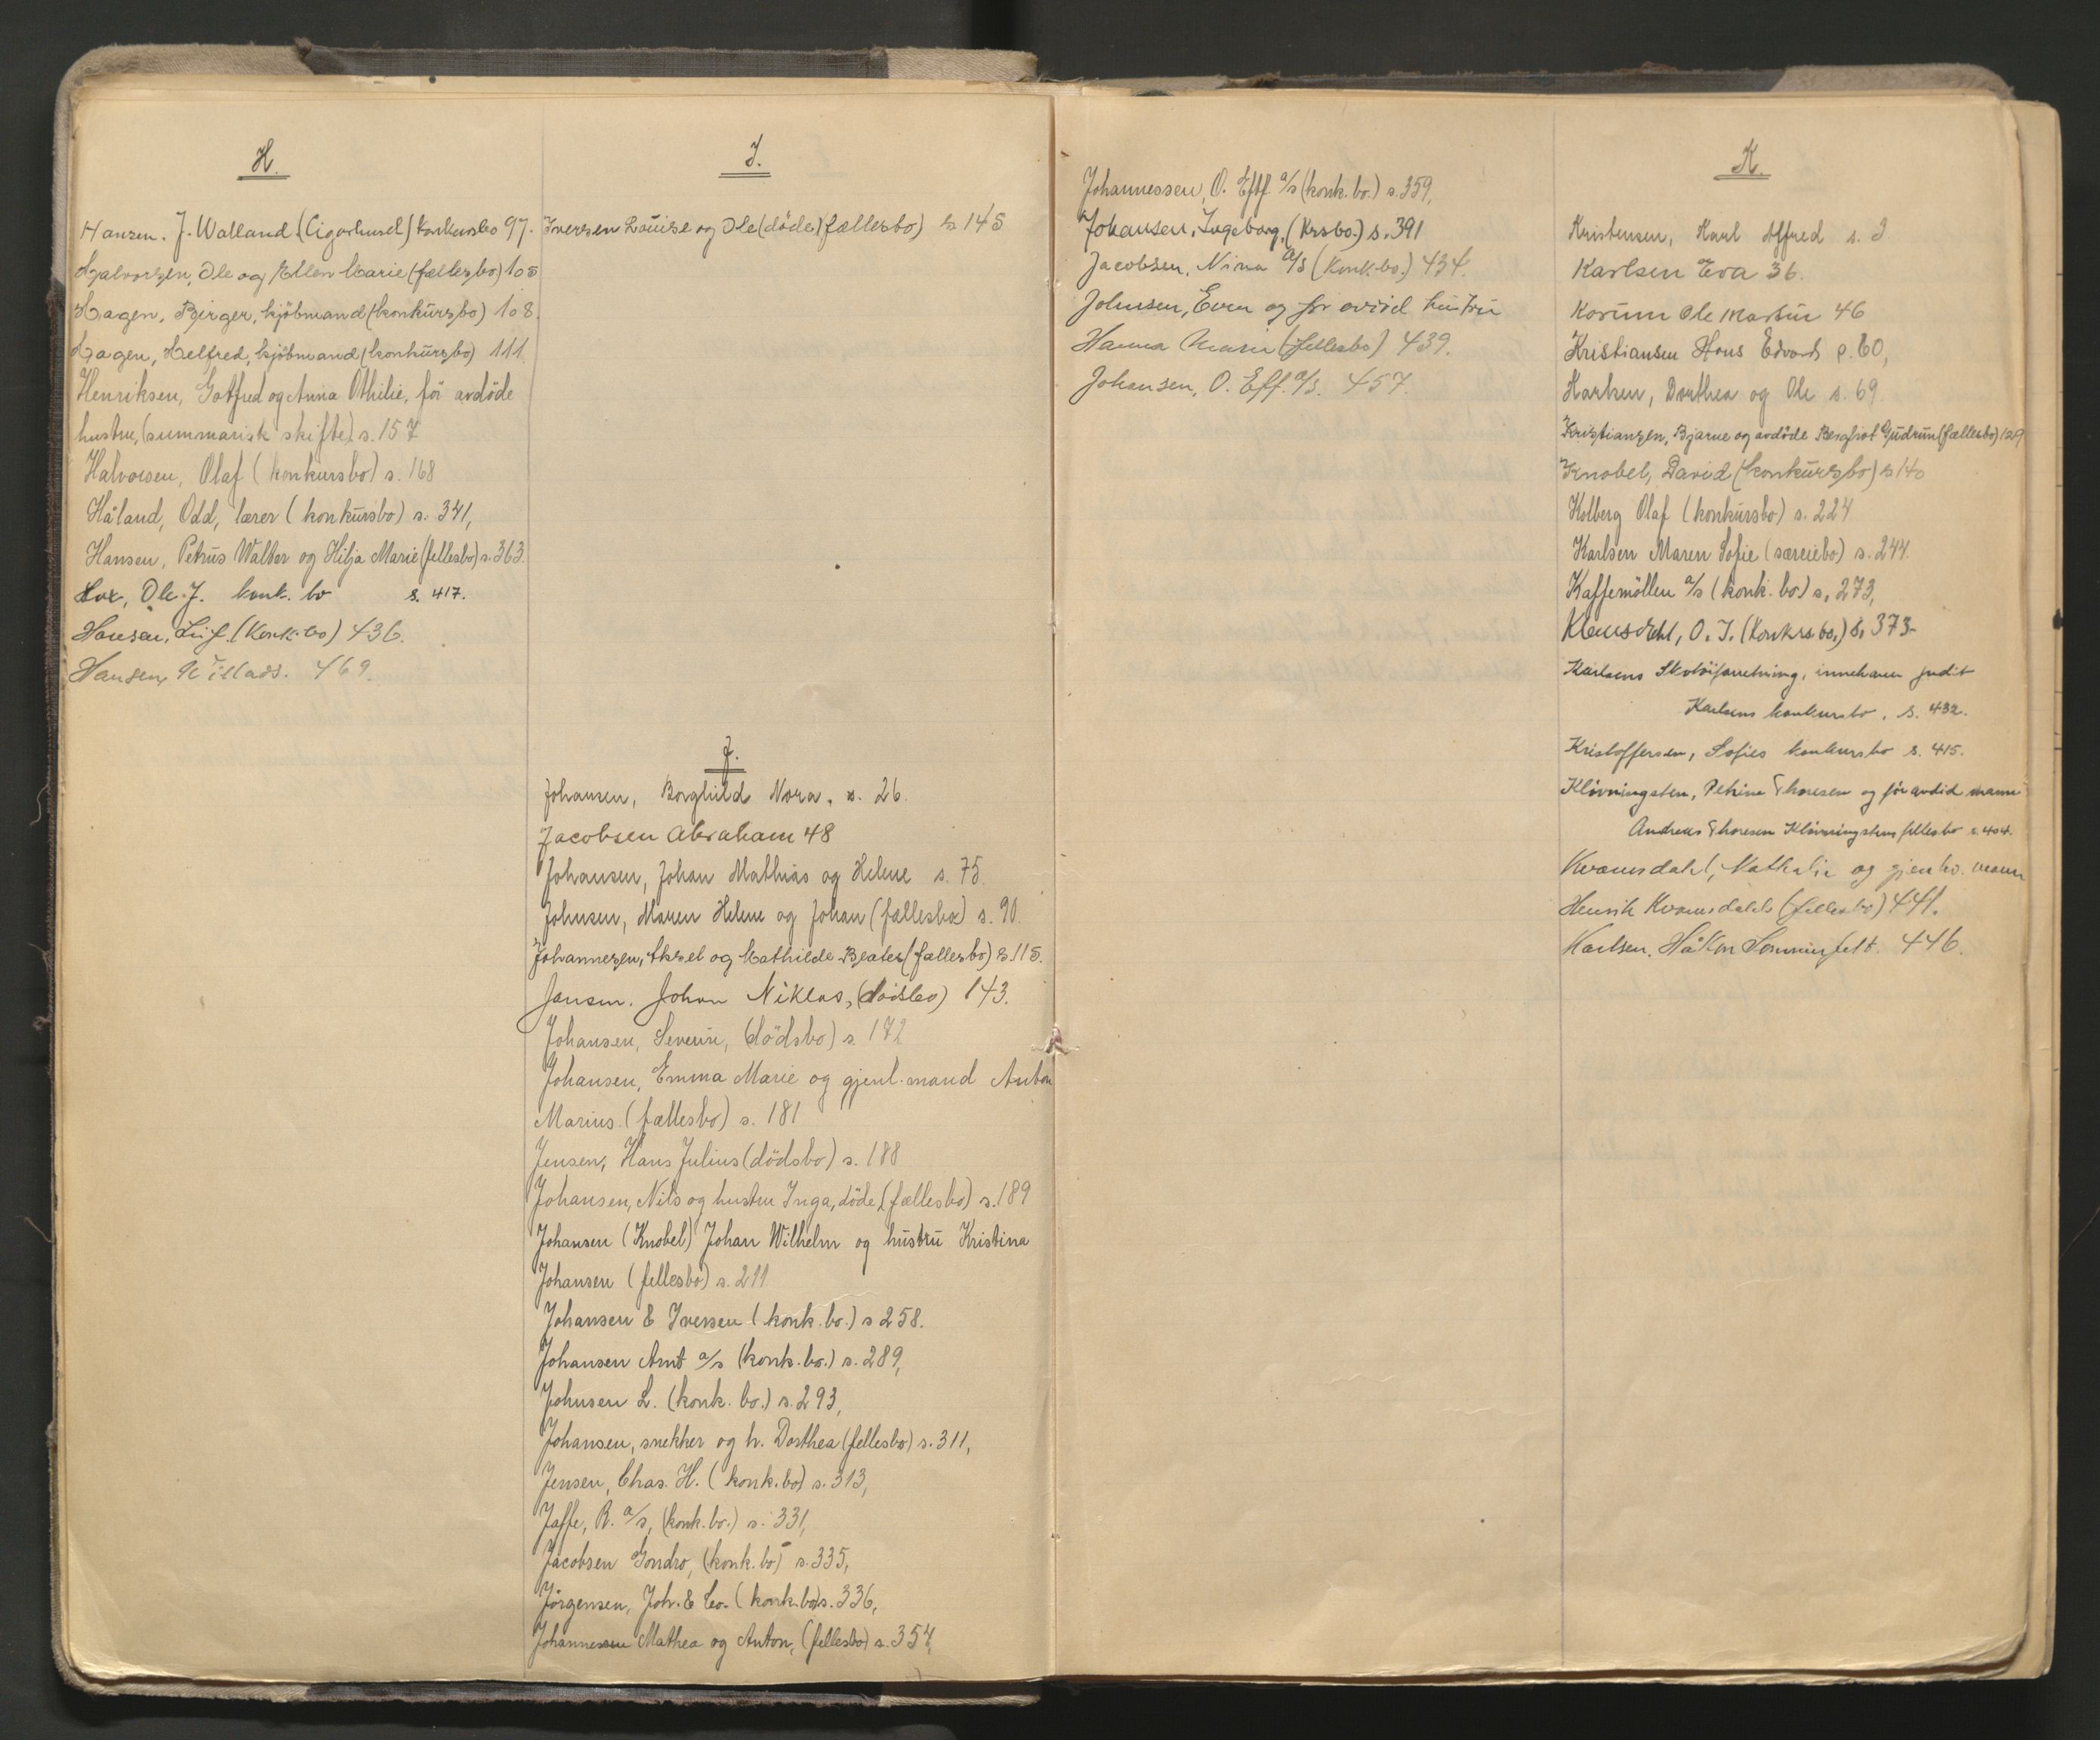 H.
Hansen. J. Walland (Cigarhuset) konkursbo 97.
Halvorsen, Ole og Ellen Marie (fællesbo) 105
Hagen, Birger, kjöbmand (konkursbo) 108.
Hagen, Helfred, kjöbmand (konkursbo) 111.
Henriksen, Gotfred og Anna Othilie, för avdöde
hustru, (summarisk skifte) s. 157
Halvorsen, Olaf (konkursbo) s. 168
Håland, Odd, lærer (konkursbo) s. 341,
Hansen, Petrus Walter og Hilja Marie (fellesbo) s. 363.
Hox, Ole J. konk. bo s. 417.
Hansen, Leif. (Konk. bo) 436.
Hansen, Villads. 469.
I.
Iversen Louise og Ole (döde) (fællesbo) s 145
J.
Johansen, Borghild Nora. s. 26.
Jacobsen Abraham 48
Johansen, Johan Mathias og Helene s. 75.
Johnsen, Maren Helene og Johan (fællesbo) s. 90.
Johannesen, Aksel og Mathilde Beates (fællesbo) s 115.
Jansen. Johan Niklas, (dödsbo) 143.
Johansen, Severin, (dödsbo) s 172
Johansen, Emma Marie og gjenl. mand Anton
Marius. (fællesbo) s. 181
Jensen, Hans Julius (dödsbo) s. 188
Johansen, Nils og hustru Inga, döde, (fællesbo) s. 189
Johansen (Knobel) Johan Wilhelm og hustru Kristina
Johansen (fellesbo) s. 211.
Johansen & Iversen (konk. bo.) s 258.
Johansen Arnt a/s (konk. bo.) s. 289,
Johnsen L. (konk. bo.) s. 293,
Johansen, snekker og h. Dorthea (fellesbo) s. 311,
Jensen, Chas. H. (konk. bo) s. 313,
Jaffe, R. a/s, (konk. bo.) s. 331,
Jacobsen Gondro, (konk. bo) s. 335,
Jörgensen, Joh. & Co. (konk. bo) s. 336,
Johannessen Mathea og Anton, (fellesbo) s. 354,
Johannessen, O. Eftf a/s (konk. bo.) s. 359,
Johansen, Ingeborg, (krsbo.) s. 391
Jacobsen, Nina a/s (Konk. bo.) 434.
Johnsen, Even og før avdöd hustru
Hanna Marie (fellesbo) 439.
Johansen, O. Eff. a/s. 457.
K.
Kristensen, Karl Alfred s. 3
Karlsen Eva 36.
Korum Ole Martin 46
Kristiansen Hans Edvard p. 60,
Karlsen, Dorthea og Ole s. 69
Kristiansen, Bjarne og avdöde Bergliot Gudrun (fællesbo) 129
Knobel, David (konkursbo) s 140
Kolberg Olaf (konkursbo) s. 224
Karlsen Maren Sofie (særeiebo) s. 244.
Kaffemöllen a/s (konk. bo) s. 273,
Klausdahl, O. J. (Konkrs. bo.) s. 373-
Karlsens Skotöiforretning, innehaver Judit
Karlsens konkursbo, s. 432.
Kristoffersen, Sofies konkursbo s. 415.
Klövningsten, Petrine Thoresen og för avdöd mann
Andreas Thoresen Klövningstens fellesbo s. 404.
Kvamsdahl, Nathalie og gjenlev. mann
Henrik Kvamsdahls (fellesbo) 441.
Karlsen. Håkon Sommerfelt. 446.